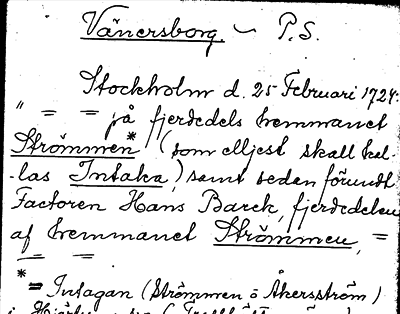 Vänersborg – P.S.
Stockholm d. 25 Februari 1724:
" = = på fjerdedels hemmanet
Strömmen* (som elljest skall kal-
-las Intaka,) samt sedan förundt
Factoren Hans Barck, fjerdedelen
af hemmanet Strömmen, =
= =
* = Intagan (Strömmen ö Åkersström)
i